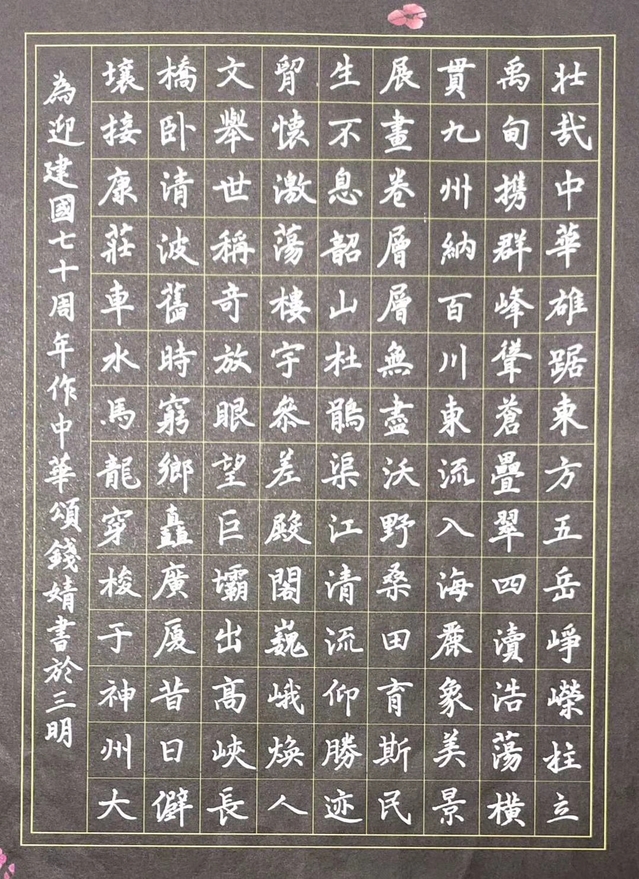 壯哉中華雄踞東方五岳崢嶸柱立
禹甸攜群峰聳蒼疊翠四瀆浩蕩橫
貫九州納百川東流入海森象美景
展畫卷層層無盡沃野桑田育斯民
生不息韶山杜鵑渠江清流仰勝迹
胷懷激蕩樓宇參差殿閣巍峨煥人
文舉世稱奇放眼望巨壩出高峽長
橋卧清波舊時窮鄉矗廣厦昔日僻
壤接康莊車水馬龍穿梭于神州大
為迎建國七十周年作中華頌錢婧書於三明